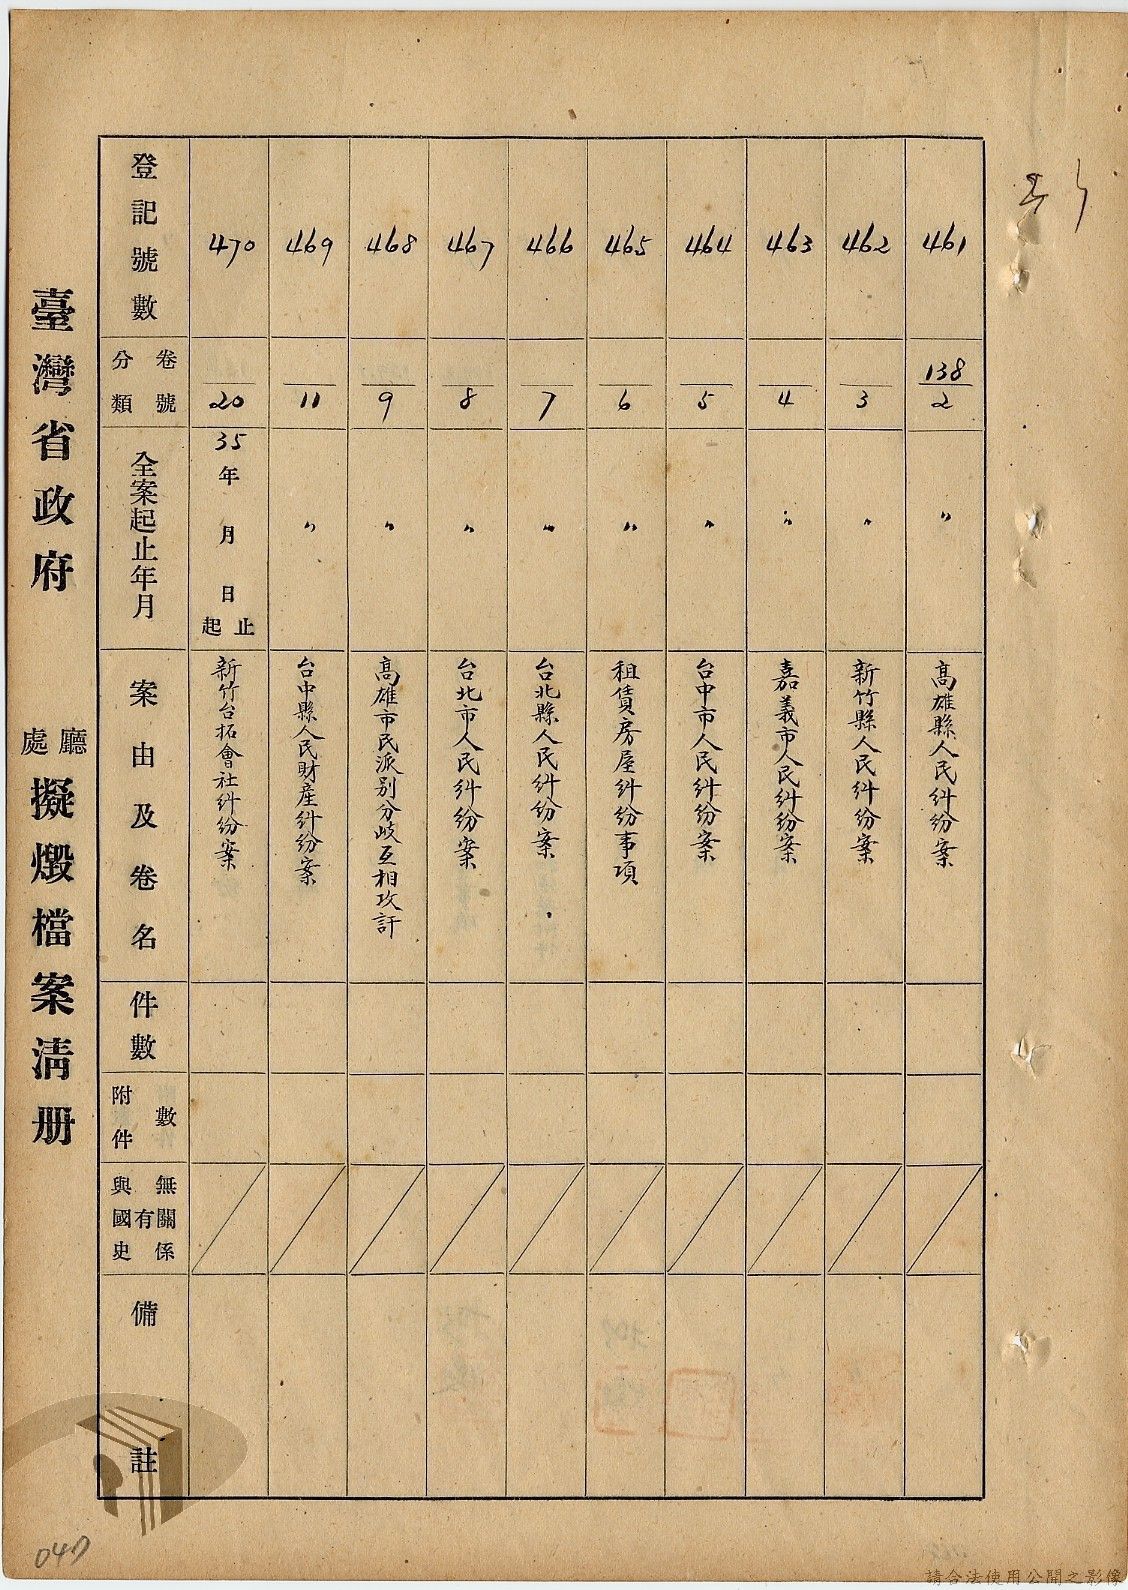 臺灣省政府 廳處 擬燬檔案清册
登記號數
卷號
分類
全案起止年月
案由及卷名
件數
附件數
與國史有無關係
備註
461
138
2
〃
高雄縣人民糾紛案
462
3
〃
新竹縣人民糾紛案
463
4
〃
嘉義市人民糾紛案
464
5
〃
台中市人民糾紛案
465
6
〃
租賃房屋糾紛事項
466
7
〃
台北縣人民糾紛案
467
8
〃
台北市人民糾紛案
468
9
〃
高雄市民派別分歧互相攻訐
469
11
〃
台中縣人民財產糾紛案
470
20
35年 月 日起止
新竹台拓會社糾紛案
047
請合法使用公開之影像